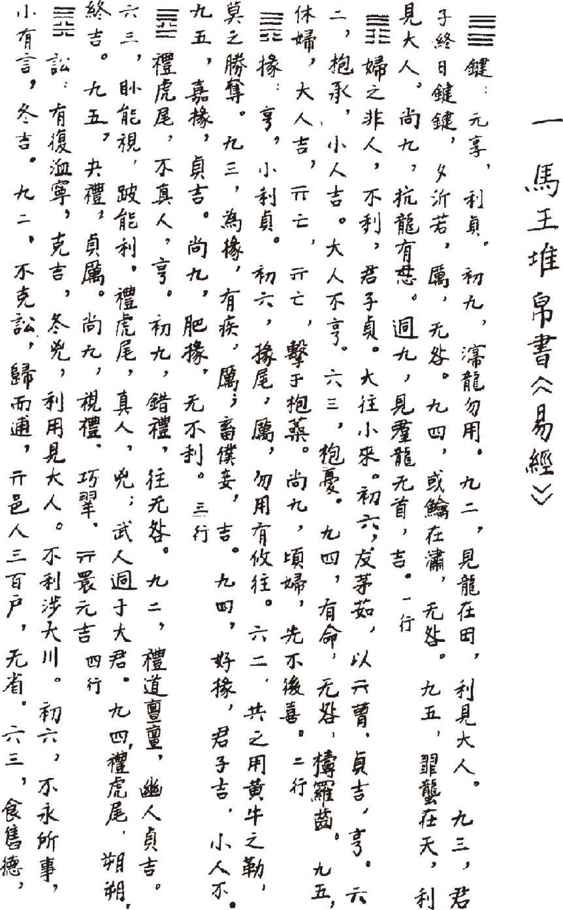 一 馬王堆帛書《易經》
䷀ 鍵：元享，利貞。初九，濅龍勿用。九二，見龍在田，利見大人。九三，君
子終日鍵鍵，夕沂若，厲，无咎。九四，或在，无咎。九五，在天，利
見大人。尚九，抗龍有。迵九，見羣龍无首，吉。一行
䷋ 婦之非人，不利，君子貞。大往小來。初六，犮茅茹，以亓曹，貞吉，亨。六
二，抱承，小人吉。大人不亨。六三，抱憂。九四，有命，无咎，檮羅齒。九五，
休婦，大人吉，亓亡，亓亡，擊于抱桑。尚九，頃婦，先不後喜。二行
䷠ 掾：亨，小利貞。初六，掾尾，厲，勿用有攸往。六二，共之用黃牛之勒，
莫之勝奪。九三，為掾，有疾，厲；畜僕妾，吉。九四，好掾，君子吉，小人不。
九五，嘉掾，貞吉。尚九，肥掾，无不利。三行
䷉ 禮虎尾，不真人，亨。初九，錯禮，往无咎。九二，禮道亶亶，幽人貞吉。
六三，眇能視，跛能利。禮虎尾，真人，兇；武人迵于大君。九四，禮虎尾，朔朔，
終吉。九五，夬禮，貞厲。尚九，視禮，巧翟，亓睘元吉 四行
䷅ 訟：有復洫寧，克吉，冬兇，利用見大人。不利涉大川。初六，不永所事，
小有言，冬吉。九二，不克訟，歸而逋，亓邑人三百户，无省。六三，食舊德，